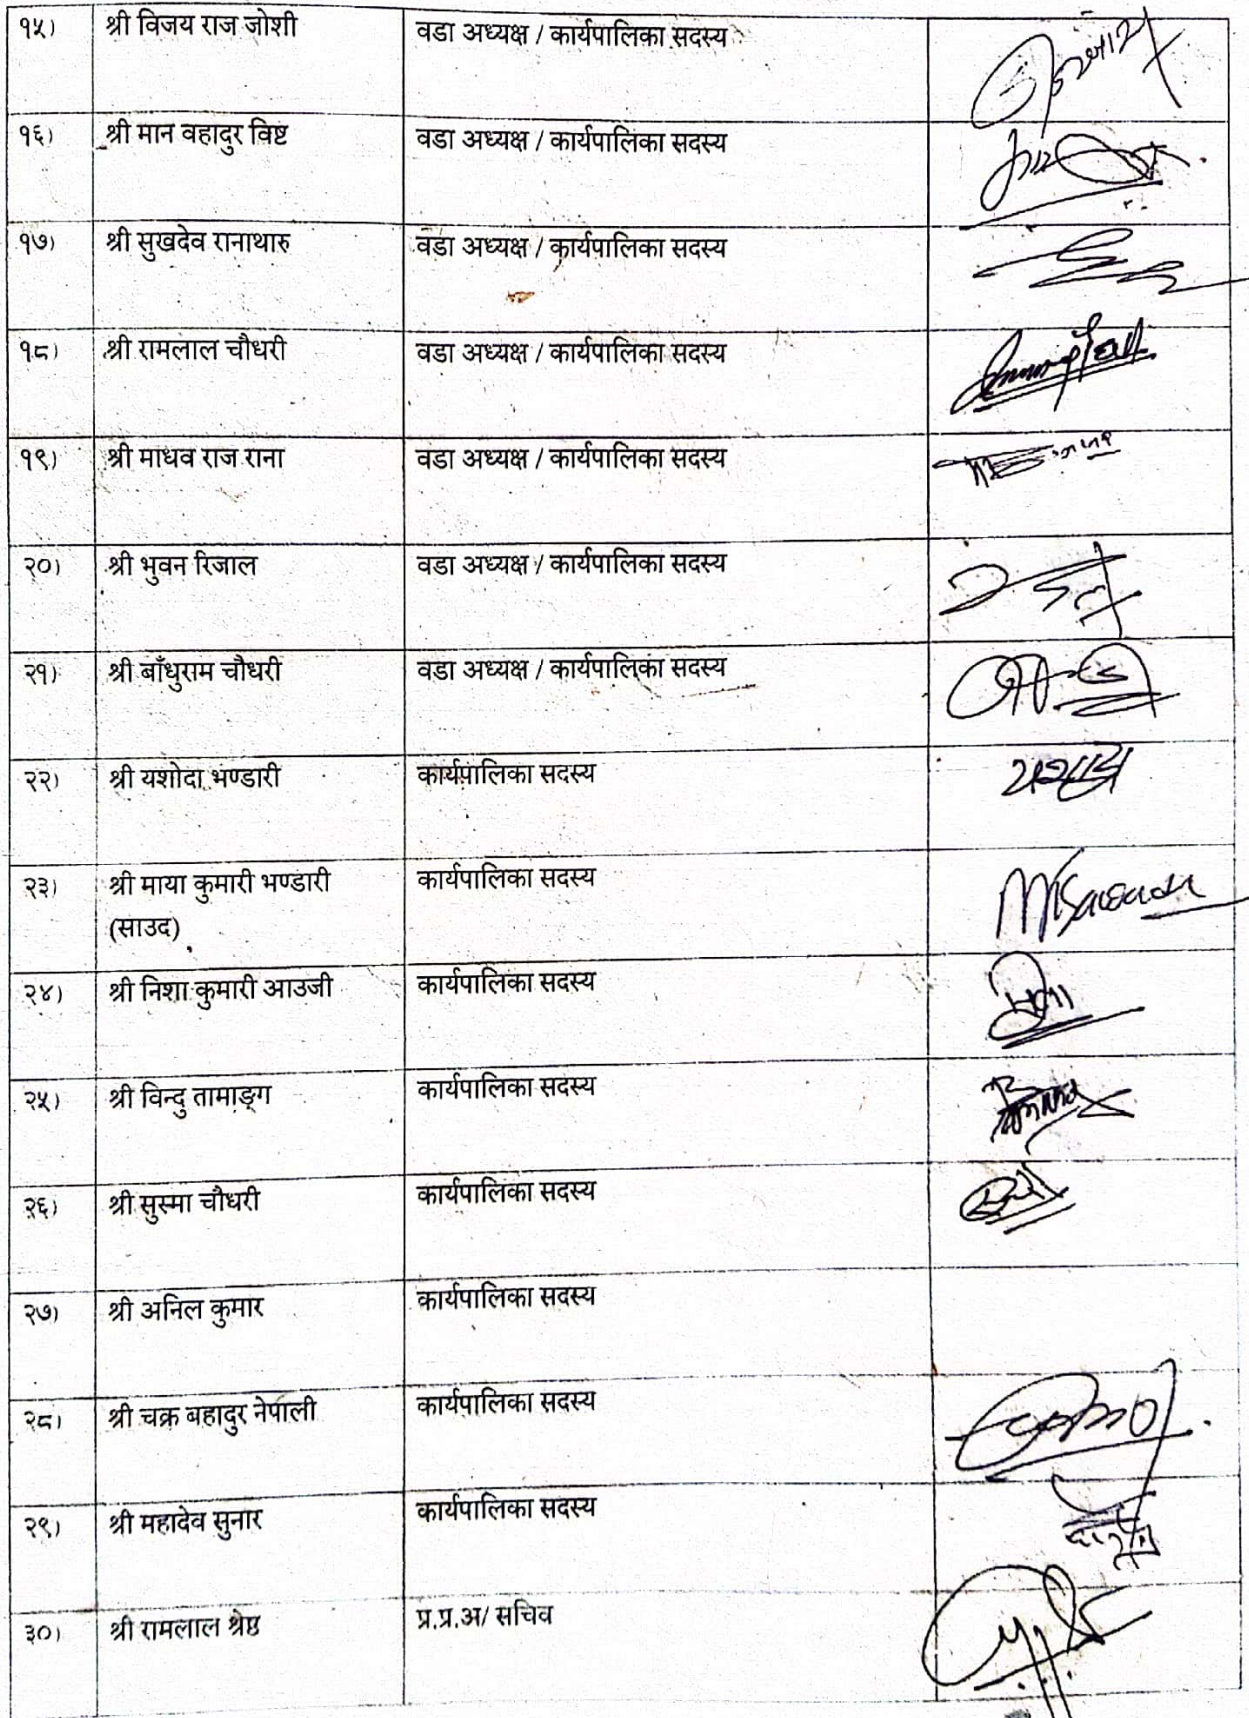 १५) श्री विजय राज जोशी वडा अध्यक्ष / कार्यपालिका सदस्य
१६) श्री मान वहादुर विष्ट वडा अध्यक्ष / कार्यपालिका सदस्य
१७) श्री सुखदेव रानाथारु वडा अध्यक्ष / कार्यपालिका सदस्य
१८) श्री रामलाल चौधरी वडा अध्यक्ष / कार्यपालिका सदस्य
१९) श्री माधव राज राना वडा अध्यक्ष / कार्यपालिका सदस्य
२०) श्री भुवन रिजाल वडा अध्यक्ष / कार्यपालिका सदस्य
२१) श्री बाँधुराम चौधरी वडा अध्यक्ष / कार्यपालिका सदस्य
२२) श्री यशोदा भण्डारी कार्यपालिका सदस्य
२३) श्री माया कुमारी भण्डारी कार्यपालिका सदस्य
(साउद)
२४) श्री निशा कुमारी आउजी कार्यपालिका सदस्य
२५) श्री विन्दु तामाङ्ग कार्यपालिका सदस्य
२६) श्री सुस्मा चौधरी कार्यपालिका सदस्य
२७) श्री अनिल कुमार कार्यपालिका सदस्य
२८) श्री चक्र बहादुर नेपाली कार्यपालिका सदस्य
२९) श्री महादेव सुनार कार्यपालिका सदस्य
३०) श्री रामलाल श्रेष्ठ प्र.प्र.अ/ सचिव